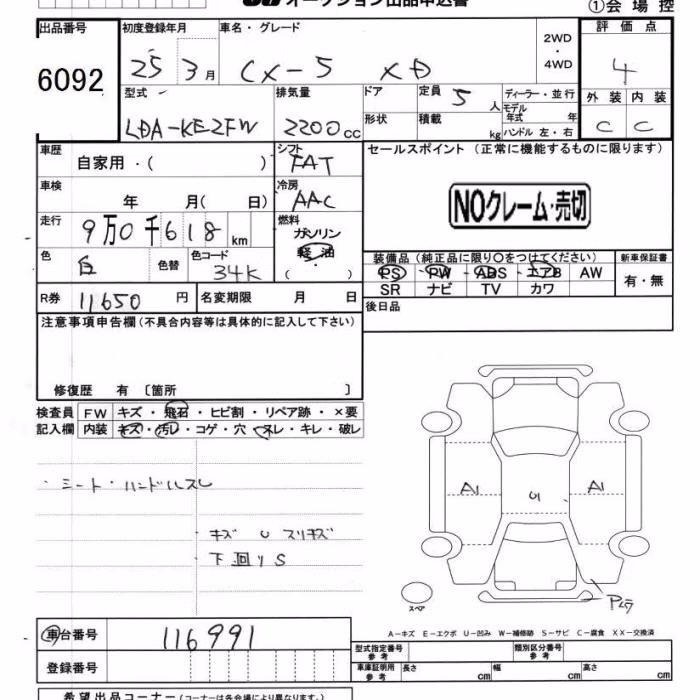 オークション出品申込書
①会場控
出品番号 初度登録年月 車名・グレード 2WD・4WD 評価点
6092 25 3月 CX-5 XD 4
型式 排気量 ドア 定員 5人 ディーラー・並行 外装 内装
モデル年式 年
LDA-KE2FW 2200cc 形状 積載 kg ハンドル 左・右 C C
車歴 自家用・( ) シフト FAT セールスポイント (正常に機能するものに限ります)
車検 年 月( 日) 冷房 AAC
NOクレーム・売切
走行 9万0千618km 燃料 ガソリン 軽油 ( )
色 白 色替 色コード 34K 装備品 (純正品に限り○をつけてください) 新車保証書
PS PW ABS エアB AW 有・無
SR ナビ TV カワ
R券 11650円 名変期限 月 日 後日品
注意事項申告欄 (不具合内容等は具体的に記入して下さい)
修復歴 有 〔箇所 〕
検査員 FW キズ・飛石・ヒビ割・リペア跡・×要
記入欄 内装 キズ・汚レ・コゲ・穴・スレ・キレ・破レ
・シート・ハンドルスレ
・キズ U スリキズ
・下回りS
A1 U1 A1
スペア
A-キズ E-エクボ U-凹み W-補修跡 S-サビ C-腐食 XX-交換済
車台番号 116991
型式指定番号 参考 類別区分番号 参考
登録番号 車庫証明用 参考 長さ cm 幅 cm 高さ cm
希望出品コーナー (コーナーは各会場により異なります。)